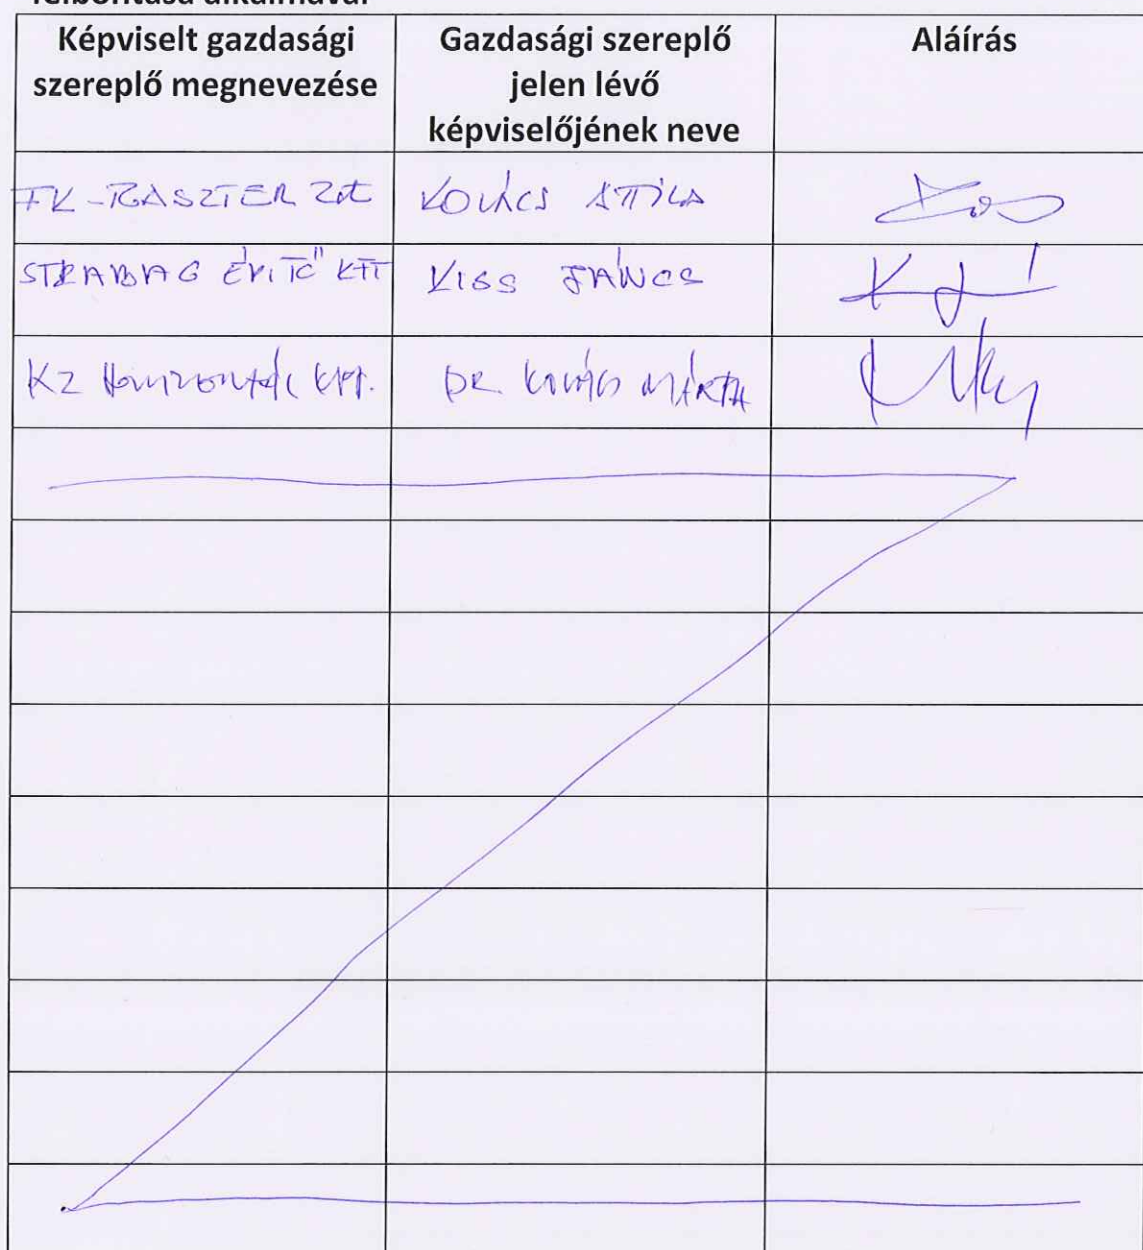 felbontása alkalmával
Képviselt gazdasági
szereplő megnevezése
Gazdasági szereplő
jelen lévő
képviselőjének neve
Aláírás
FK-RASZTER Zrt KOVÁCS ATTILA
STRABAG ÉPÍTŐ KFT KISS JÁNOS
KZ Horizontál Kft. DR. KOVÁCS MÁRTA